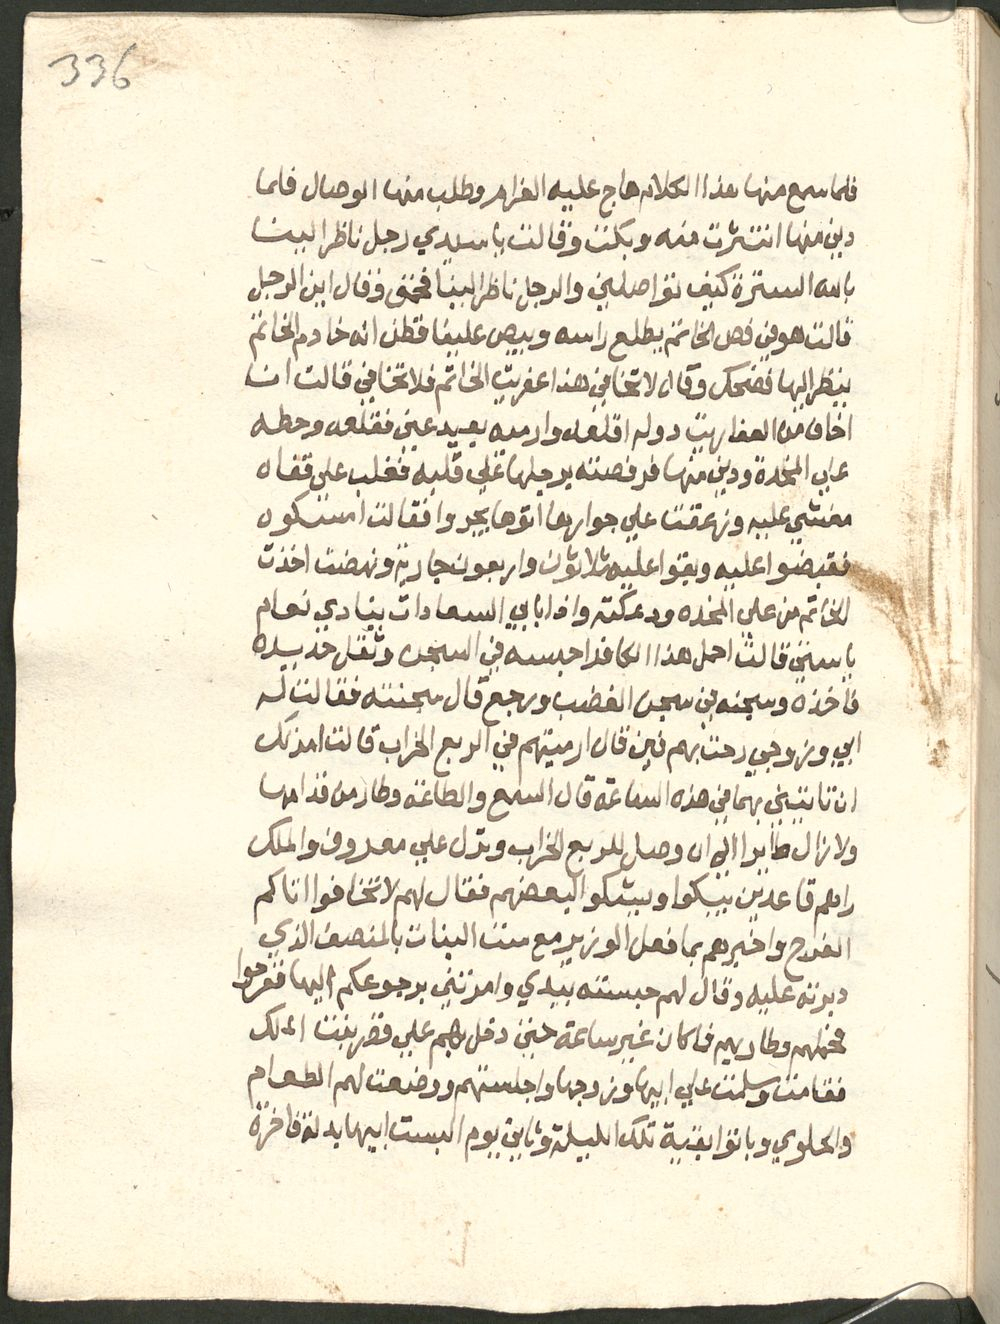 336
فلما سمع منها هذا الكلام هاج عليه الغرام وطلب منها الوصال فلما
دني منها انتثرت منه وبكت وقالت ياسيدي رجل ناظر الينا
بالله السترة كيف تواصلني والرجل ناظر الينا فحنق وقال اين الرجل
قالت هو في فص الخاتم يطلع راسه ويبص علينا فظن انه خادم الخاتم
ينظر اليها فضحك وقال لا تخافي هذا عفريت الخاتم فلا تخافي قالت انا
اخاف من العفاريت دوله اقلعه وارميه بعيد عني فقلعه وحطه
علي المخدة ودني منها فرفصته برجلها علي قلبه فغلب علي قفاه
مغشي عليه وزعقت علي جوارها اتوها يجروا فقالت امسكوه
فقبضوا عليه وبقوا عليه ثلاثون واربعون جارية ونهضت اخذت
الخاتم من علي المخده ودعكته واذا بابي السعادات ينادي نعام
ياستي قالت احمل هذا الكافر احبسه في السجن وثقل حديده
فاخذه وسجنه في سجن الغضب ورجع قال سجنته فقالت له
ابي وزوجي رحت بهم فين قال ارميتهم في الربع الخراب قالت امرتك
ان تاتيني بهما في هذه الساعة قال السمع والطاعة وطار من قدامها
ولازال طايرا الي ان وصل للربع الخراب ونزل علي معروف والملك
راهم قاعدين يبكوا ويشكوا لبعضهم فقال لهم لا تخافوا اتاكم
الفرج واخبرهم بما فعل الوزير مع ست البنات بالمنصف الذي
دبرته عليه وقال لهم حبسته بيدي وامرتني برجوعكم اليها ففرحوا
فحملهم وطار بهم فما كان غير ساعة حتي دخل بهم علي قصر بنت الملك
فقامت وسلمت علي ابيها وزوجها واجلستهم ووضعت لهم الطعام
والحلوي وباتوا بقية تلك الليلة وثاني يوم البست ابيها بدلة فاخرة